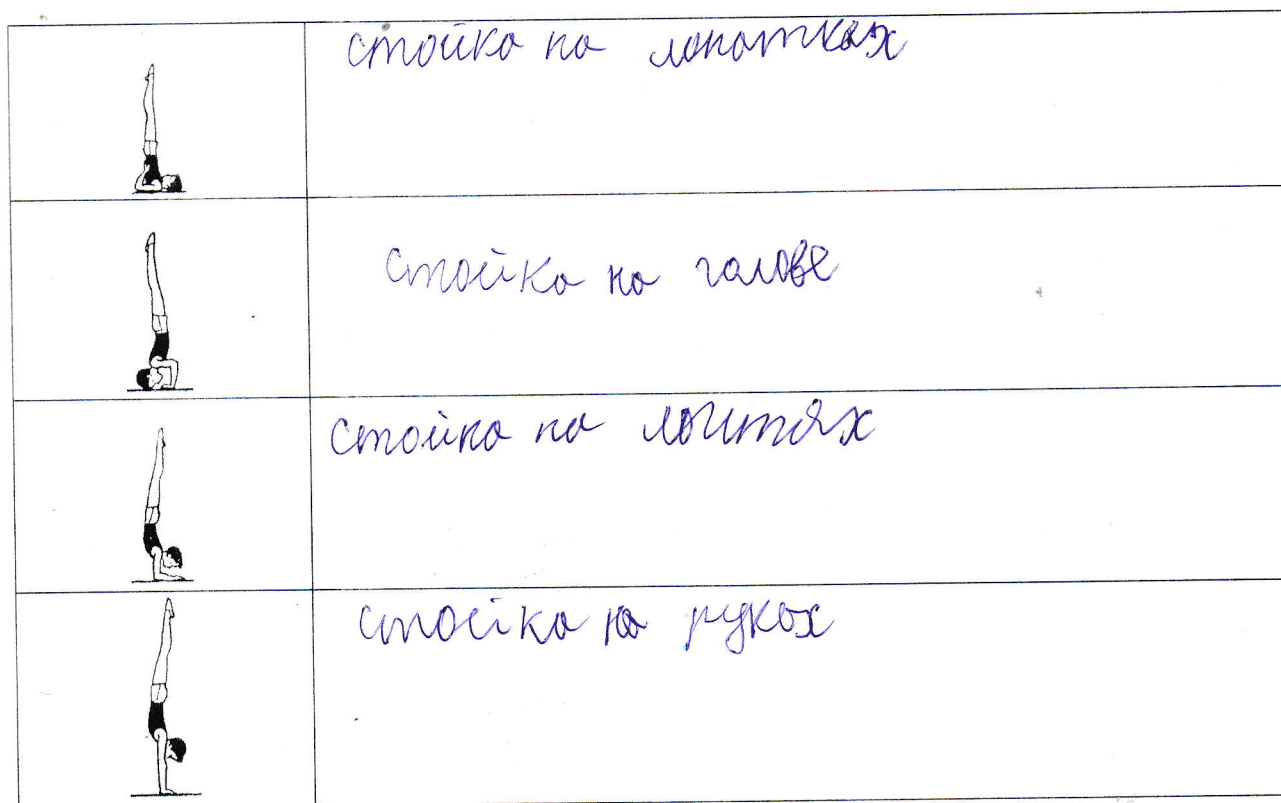 стойка на лопатках
стойка на голове
стойка на локтях
стойка на руках